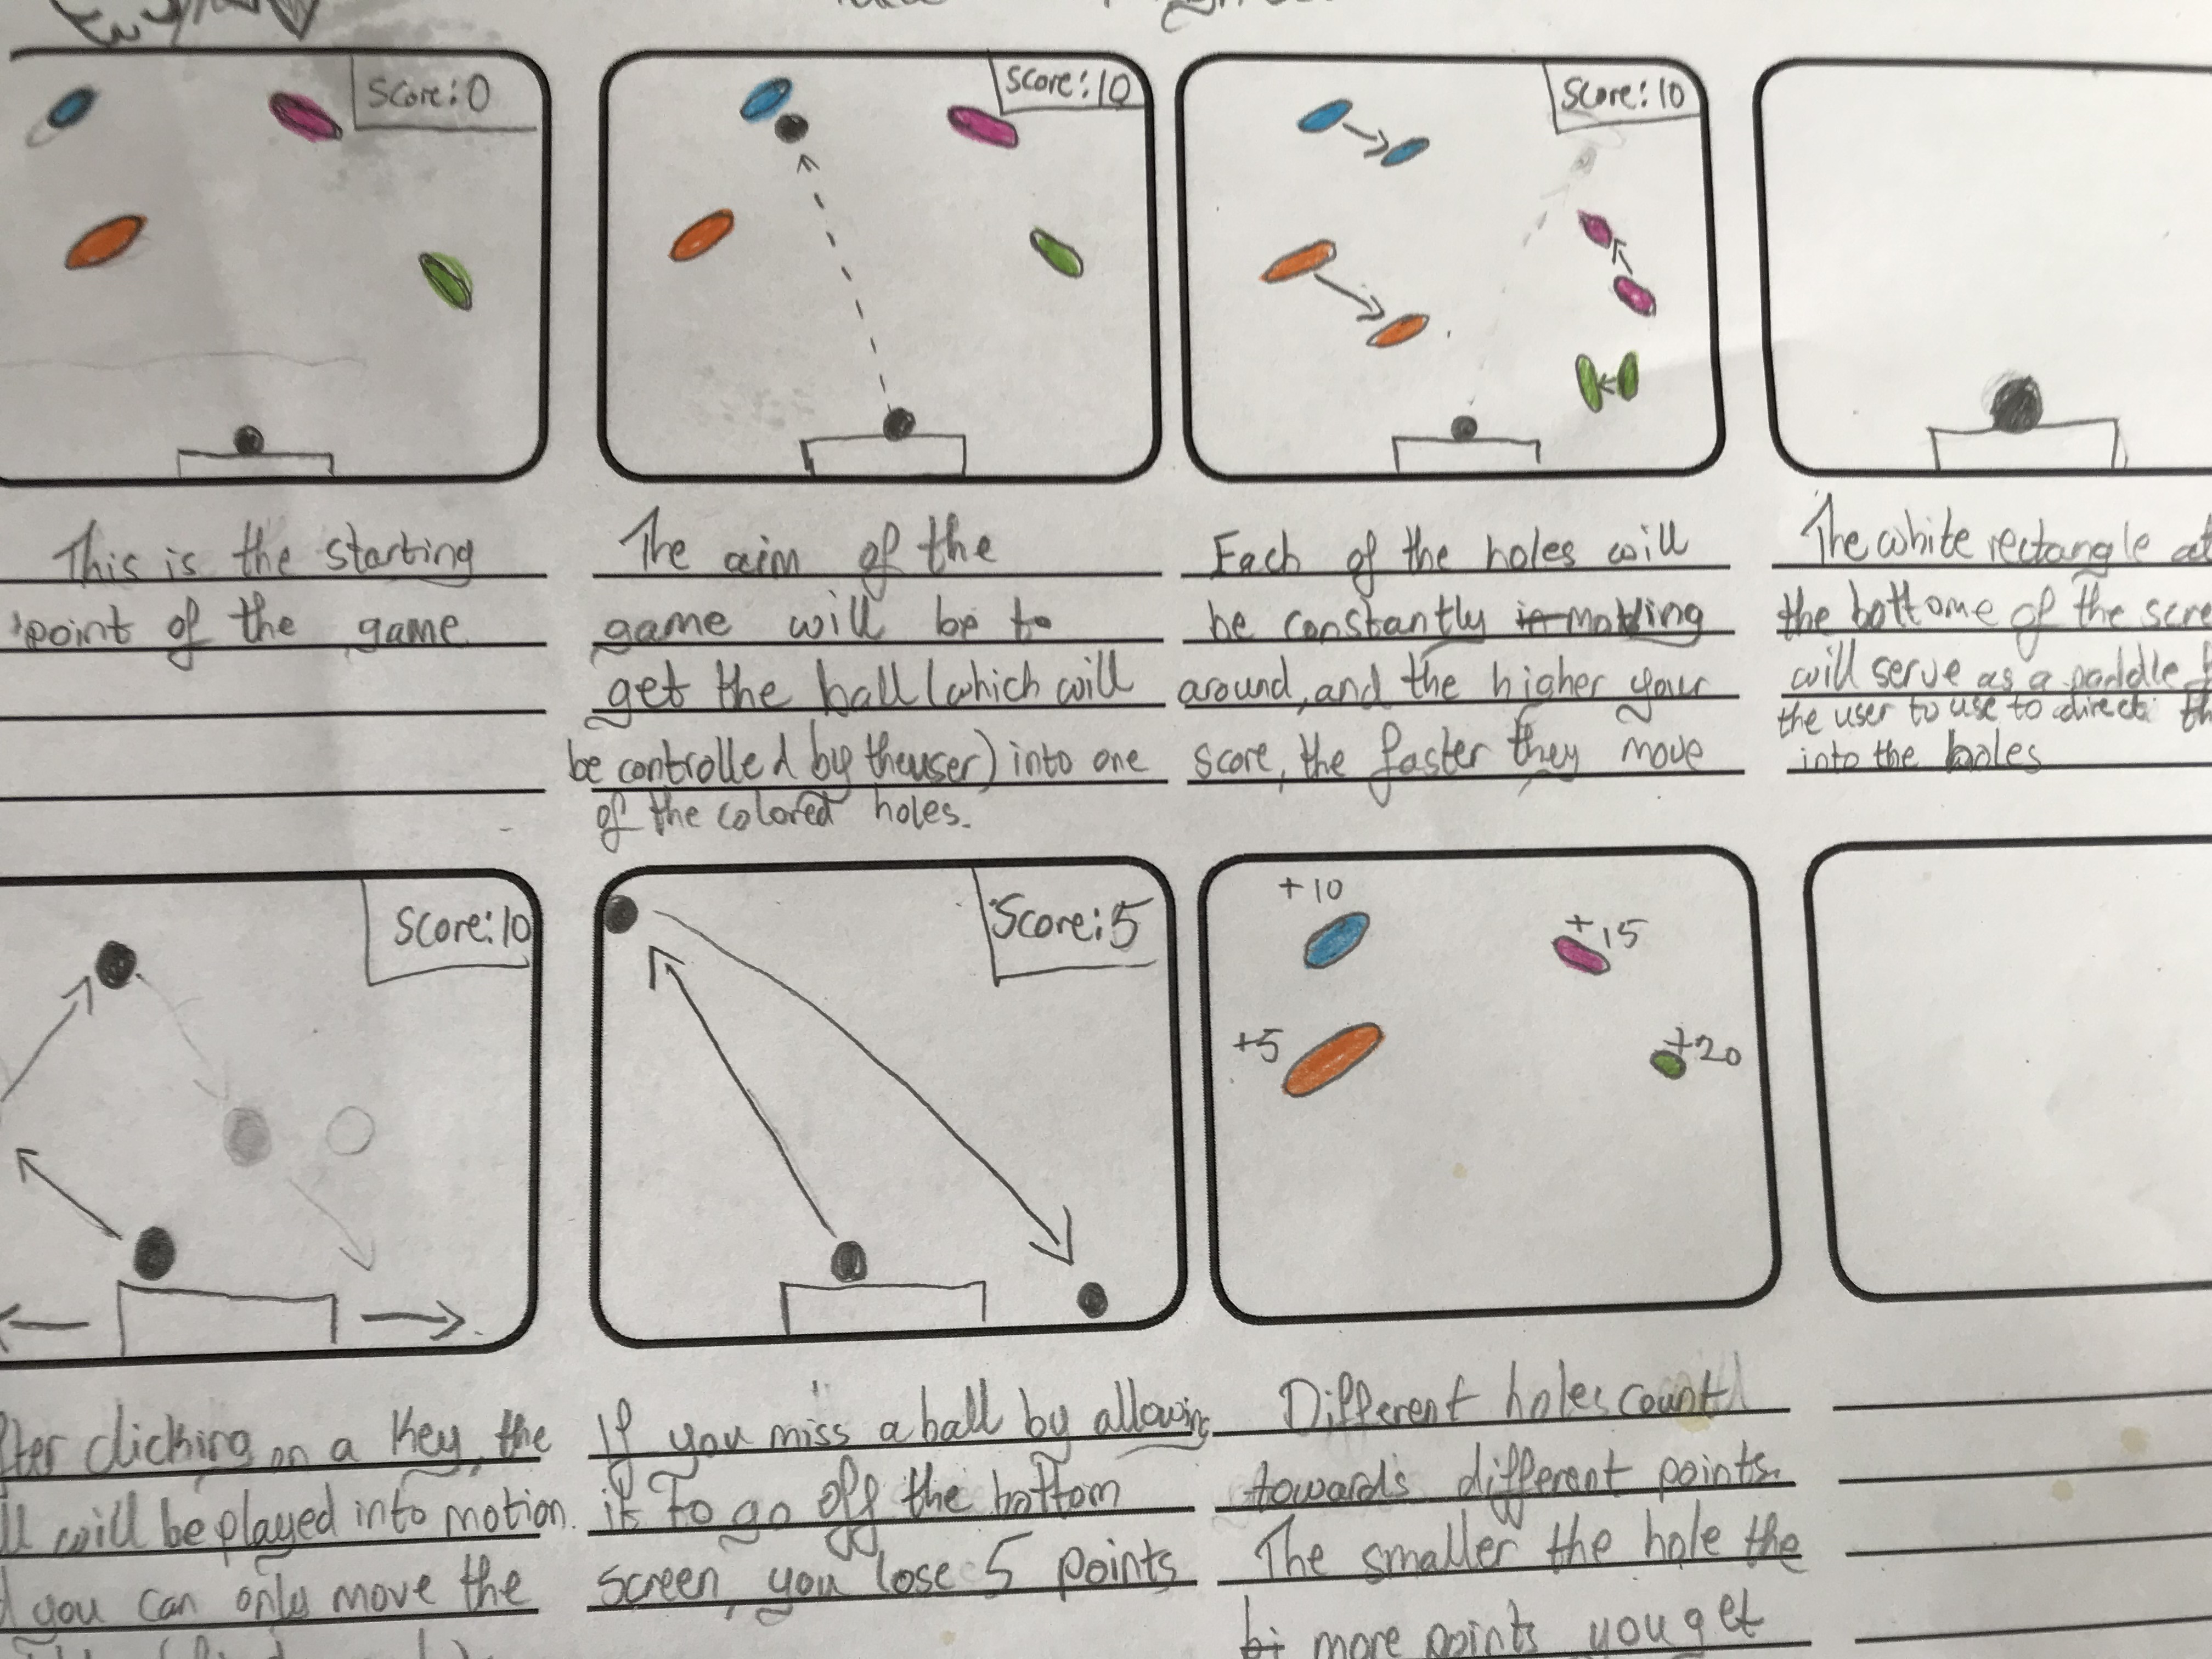 Score: 0
Score: 10
Score: 10
This is the starting
point of the game
The aim of the
game will be to
get the ball (which will
be controlled by the user) into one
of the colored holes.
Each of the holes will
be constantly moving
around, and the higher your
score, the faster they move
The white rectangle at
the bottome of the scre
will serve as a paddle
the user to use to direct th
into the holes
Score: 10
Score: 5
+10
+15
+5
+20
fter clicking on a key, the
ll will be played into motion.
d you can only move the
If you miss a ball by allowing
it to go off the bottom
screen, you lose 5 points
Different holes count
towards different points.
The smaller the hole the
more points you get